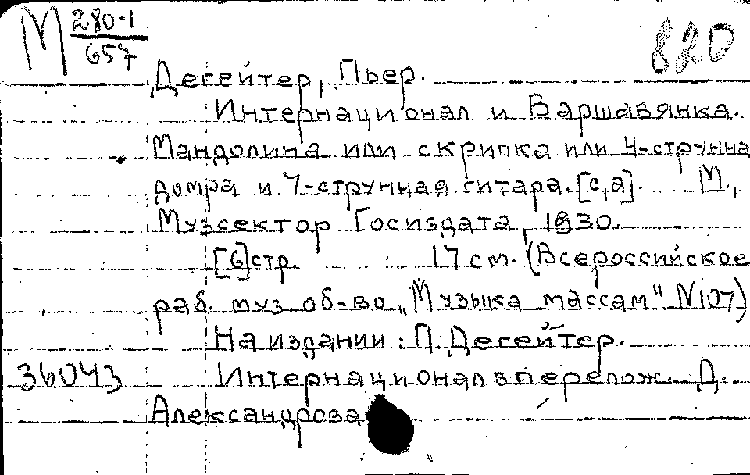 М 280-1
657
820
Десейтер, Пьер.
Интернационал и Варшавянка.
Мандолина или скрипка или 4-струнна
домра и 7-струнная гитара. [с, а]. М.,
Музсектор Госиздата, 1930.
[6] стр. 17 см. (Всероссийское
раб. муз. об-во „Музыка массам" N107)
На издании: П. Десейтер.
36043 Интернационал в перелож. Д.
Александрова